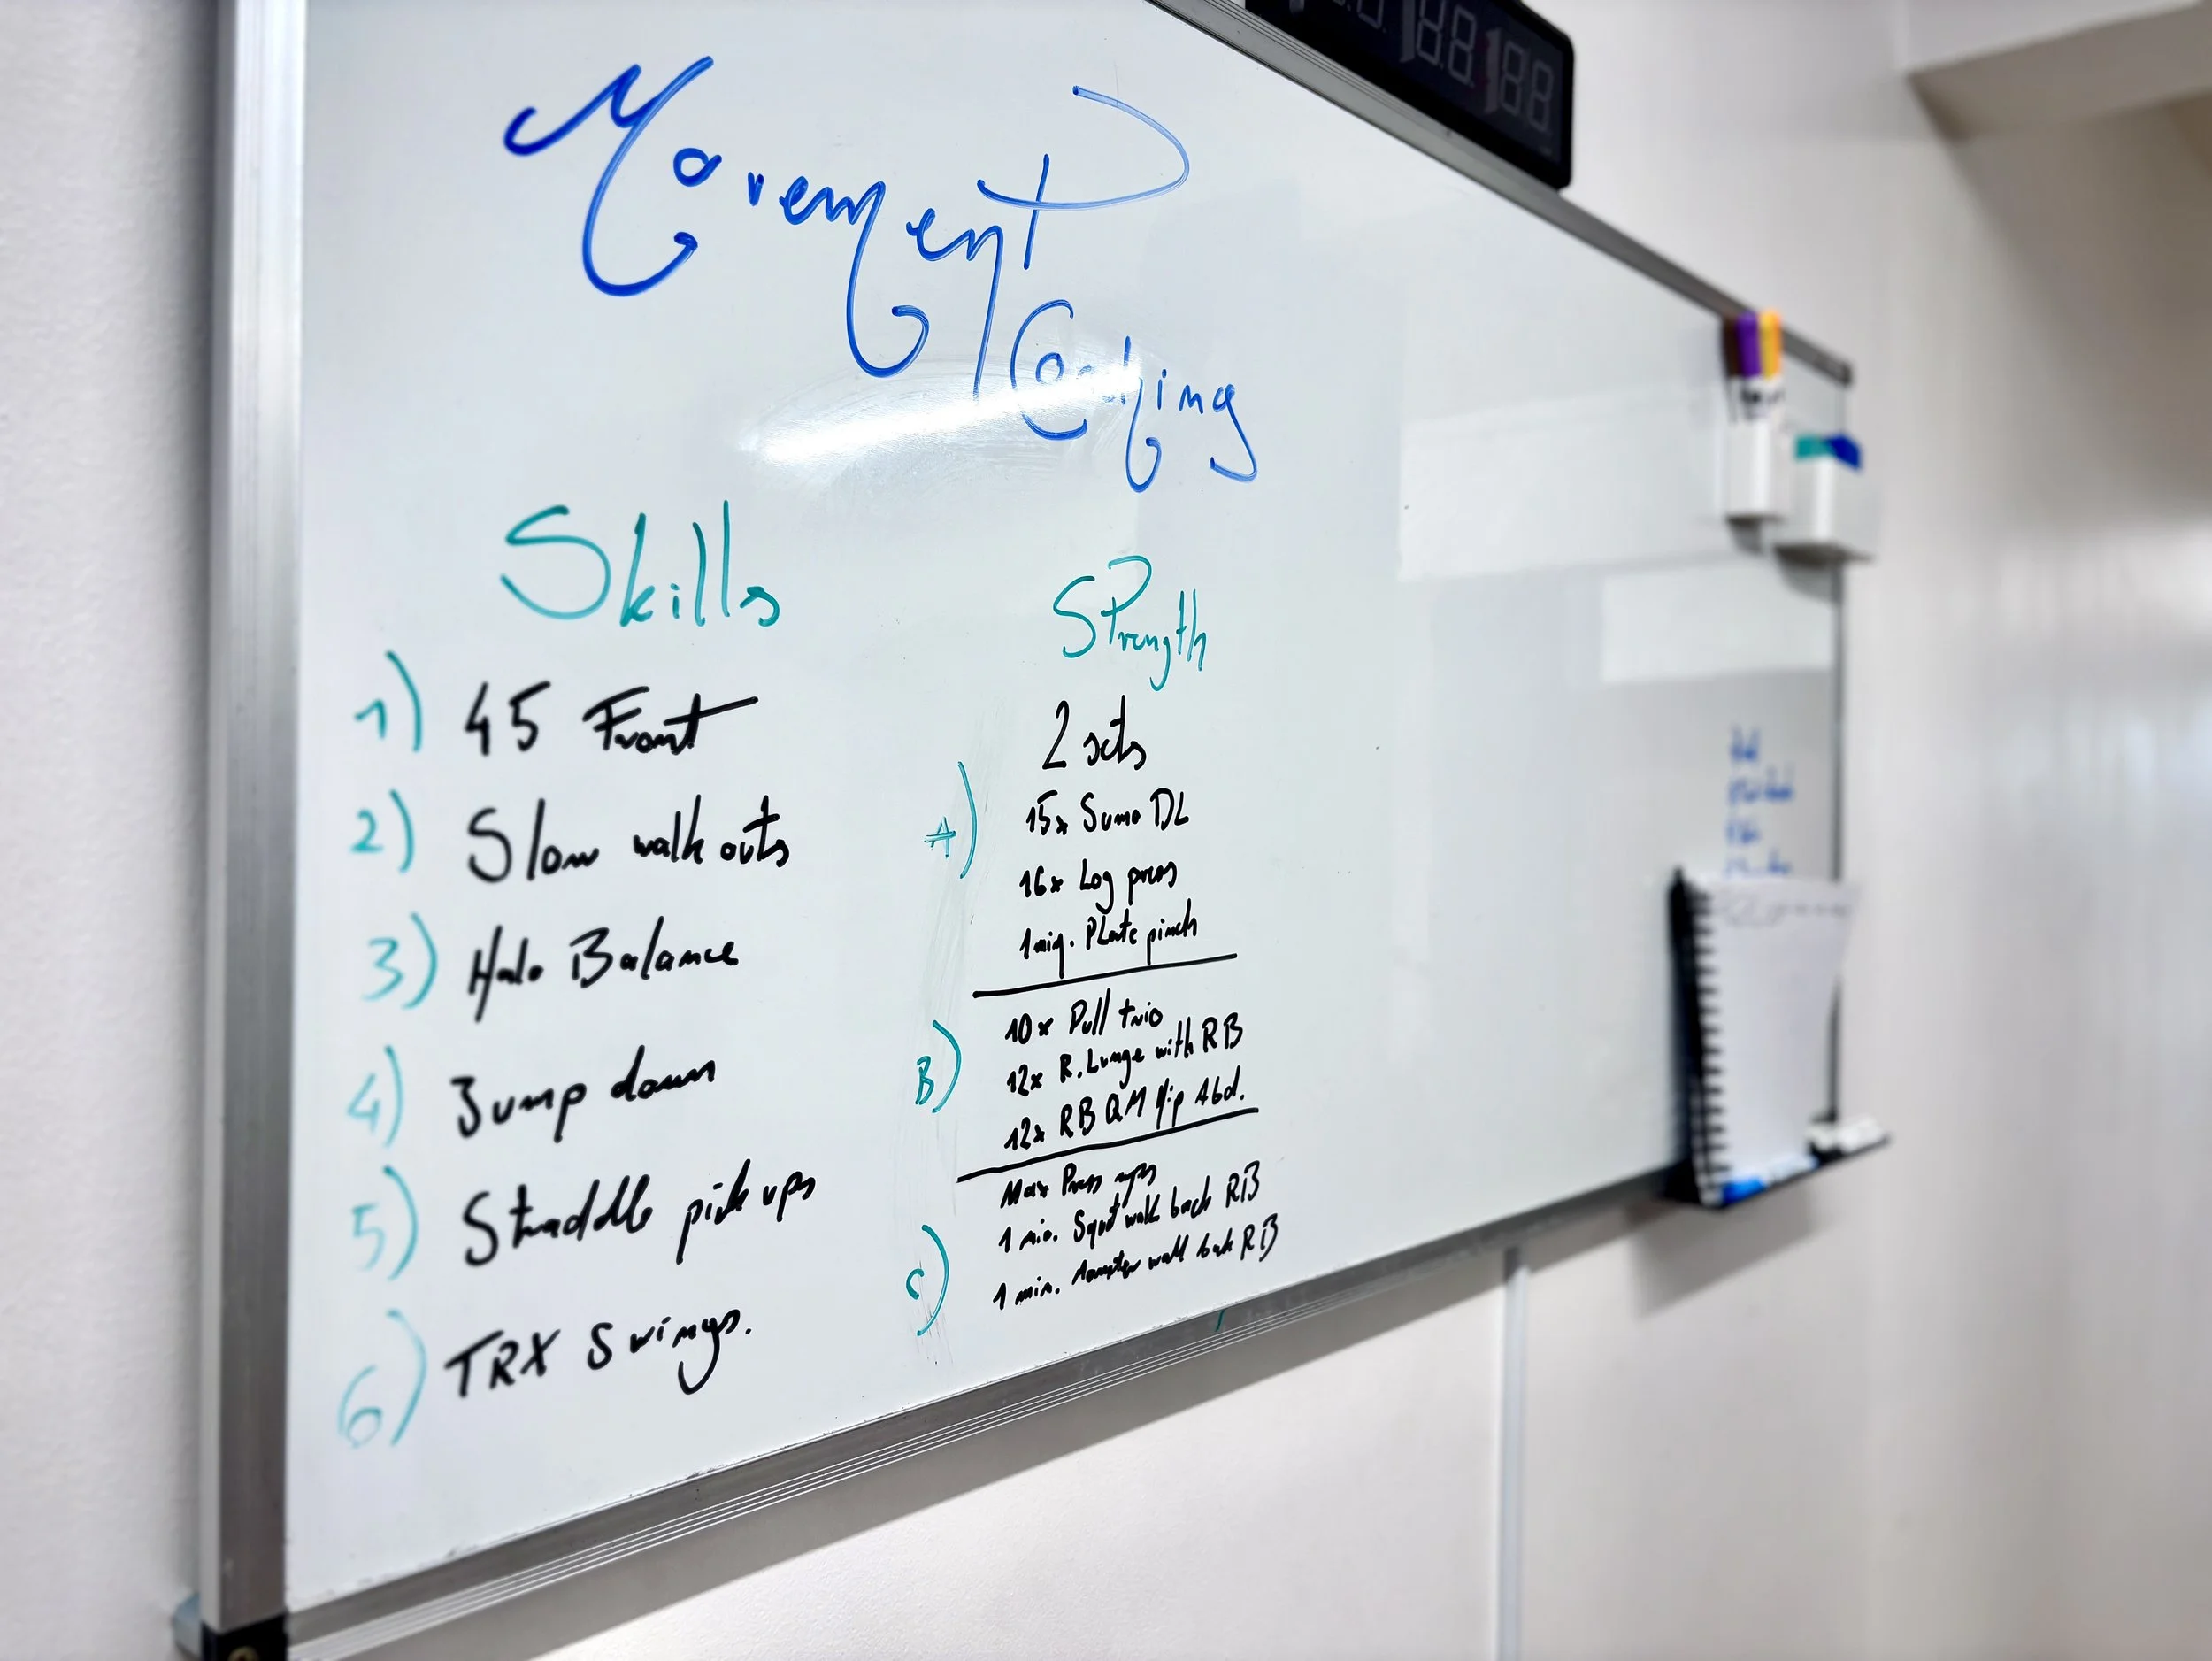 Movement
Coaching
Skills
1) 45 Front
2) Slow walk outs
3) Halo Balance
4) Jump down
5) Straddle pick ups
6) TRX Swings.
Strength
2 sets
A) 15x Sumo DL
16x Log press
1 min. Plate pinch
B) 10x Pull trio
12x R. Lunge with RB
12x RB QM Hip Abd.
C) Max Press ups
1 min. Squat walk back RB
1 min. Monster walk back RB